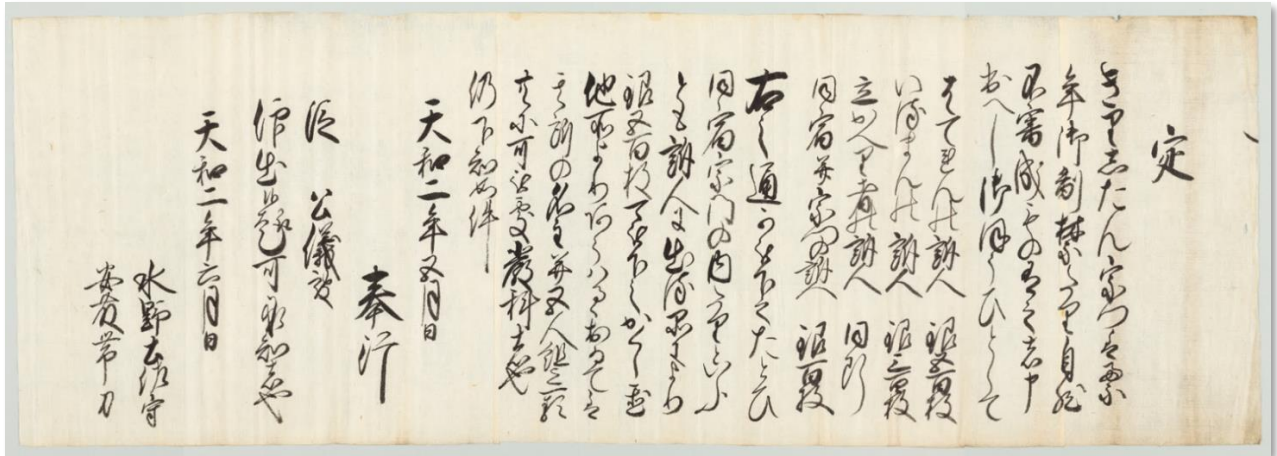 定
きりしたん宗門は累
年御制禁たり自然
不審成もの有之は申
出へし御ほうひとして
はてれんの訴人　銀五百枚
いるまんの訴人　銀三百枚
立かへり者の訴人　同断
同宿并宗門の訴人　銀百枚
右之通可被下之たとひ
同宿宗門の内たりといふ
とも訴人に出る品により
銀五百枚可被下之かくし置
他所よりあらはるゝにおゐては
其所の名主并五人組迄一類
共に可被処厳科者也
仍下知如件
天和二年五月日
奉行
従　公儀被
仰出候趣可承知者也
天和二年六月日
水野土佐守
安藤帯刀